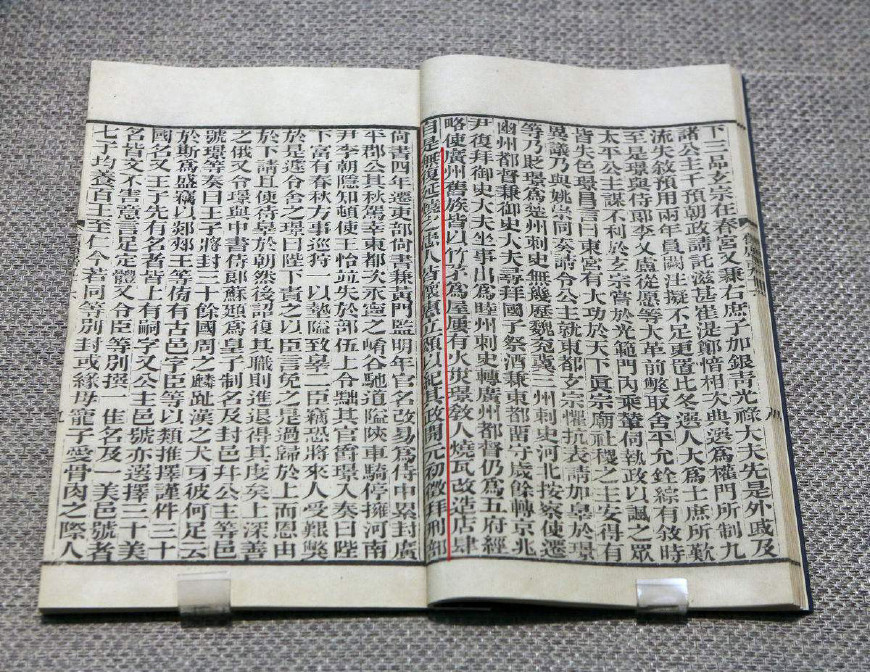 下三品玄宗在春宮又兼右庶子加銀青光祿大夫先是外戚及
諸公主干預朝政請託滋甚崔湜鄭愔相次典選爲權門所制九
流失敘預用兩年員闕注擬不足更置比冬選人大爲士庶所歎
至是璟與侍郎李乂盧從愿等大革前弊取舍平允銓綜有敘時
太平公主謀不利於玄宗嘗於光範門內乘輦伺執政以諷之眾
皆失色璟昌言曰東宮有大功於天下眞宗廟社稷之主安得有
異議乃與姚崇同奏請令公主就東都玄宗懼抗表請加罪於璟
等乃貶璟爲楚州刺史無幾歷魏兗冀三州刺史河北按察使遷
幽州都督兼御史大夫尋拜國子祭酒兼東都留守歲餘轉京兆
尹復拜御史大夫坐事出爲睦州刺史轉廣州都督仍爲五府經
略使廣州舊族皆以竹茅爲屋屢有火災璟教人燒瓦改造店肆
自是無復延燒之患人皆懷惠立頌以紀其政開元初徵拜刑部
尚書四年遷吏部尚書兼黃門監明年官名改易爲侍中累封廣
平郡公其秋駕幸東都次永寧之崤谷馳道隘陜車騎停擁河南
尹李朝隱知頓使王怡並失於部伍上令黜其官爵璟入奏曰陛
下富有春秋方事巡狩一以墊隘致罪二臣竊恐將來人受艱弊
於是遽令舍之璟曰陛下責之以臣言免之是過歸於上而恩由
於下請且使待罪於朝然後詔復其職則進退得其度矣上深善
之俄又令璟與中書侍郎蘇頲爲皇子制名及封邑并公主等邑
號璟等奏曰王子將封三十餘國周之麟趾漢之犬牙彼何足云
於斯爲盛竊以郯郟王等傍有古邑字臣等以類推擇謹件三十
國名又王子先有名者皆上有嗣字又公主邑號亦選擇三十美
名皆文不害意言足定體又令臣等別撰一佳名及一美邑號者
七子均養百王至仁今若同等別封或緣母寵子愛骨肉之際人